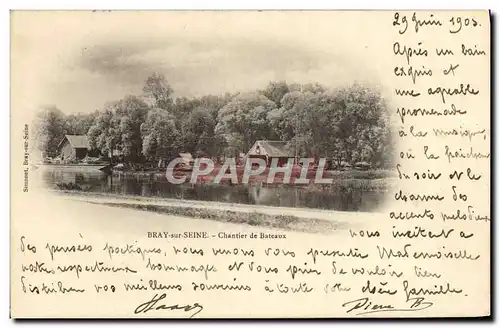 29 Juin 1903.
Après un bain
exquis et
une agréable
promenade,
à la musique,
où la fraîcheur
du soir et le
charme des
accents mélodieux
nous invitent à
CPARAMA
Sonnet, Bray-sur-Seine
BRAY-SUR-SEINE. - Chantier de Bateaux
des pensées poétiques, nous venons vous présenter
notre respectueux hommage et vous prier de vouloir bien Mademoiselle
distribuer nos meilleurs souvenirs à toute votre chère famille.
Pierre B